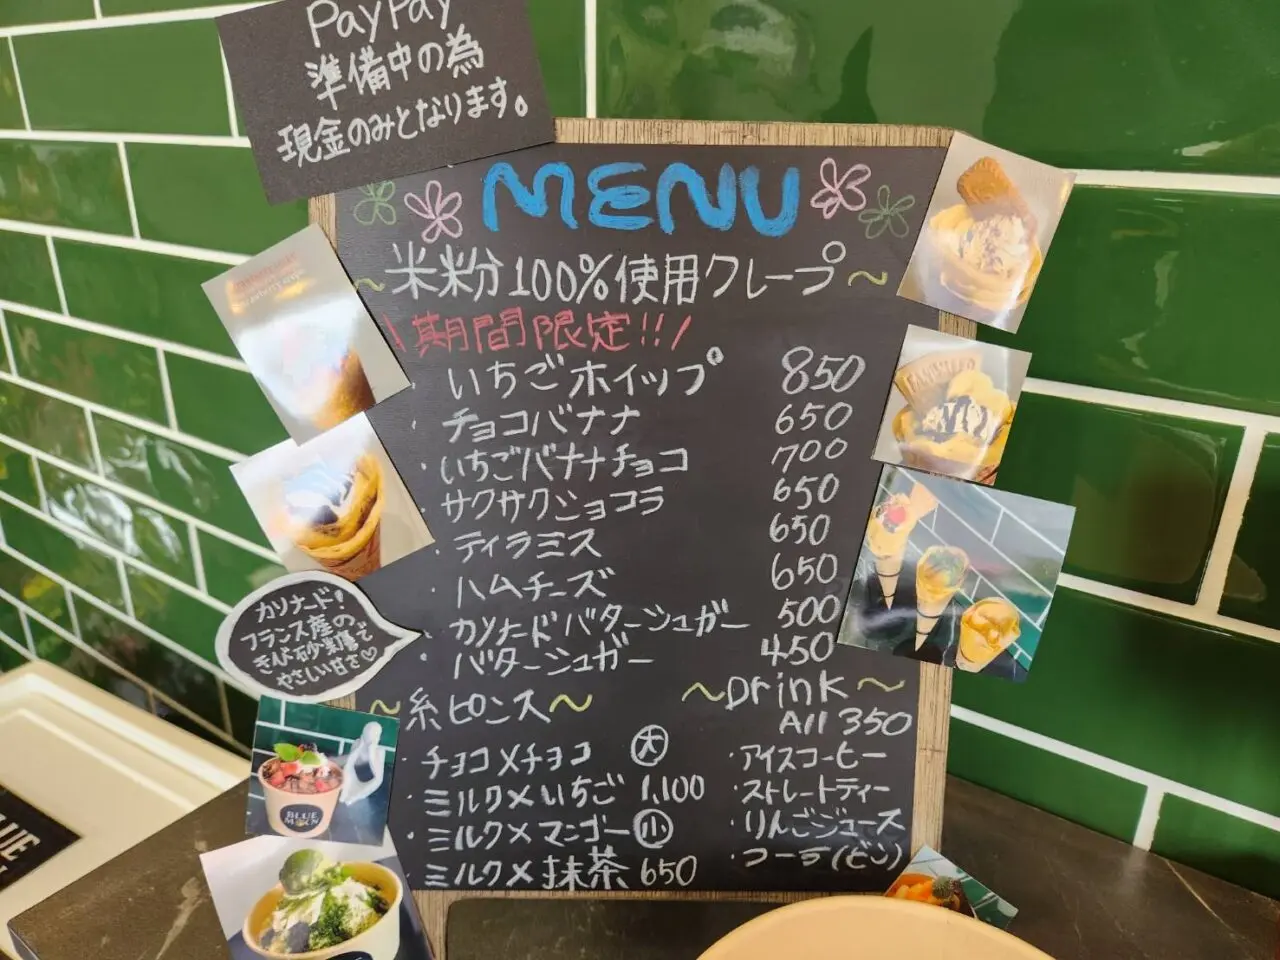 PayPay
準備中の為
現金のみとなります。
MENU
~米粉100%使用クレープ~
\期間限定!!/
・いちごホイップ 850
・チョコバナナ 650
・いちごバナナチョコ 700
・サクサクショコラ 650
・ティラミス 650
・ハムチーズ 650
・カソナードバターシュガー 500
・バターシュガー 450
カソナード!
フランス産の
きび砂糖で
やさしい甘さ♡
~糸ピンス~
・チョコ×チョコ 大
・ミルク×いちご 1,100
・ミルク×マンゴー 小
・ミルク×抹茶 650
~Drink~
All 350
・アイスコーヒー
・ストレートティー
・りんごジュース
・コーラ(ビン)
BLUE
MOON